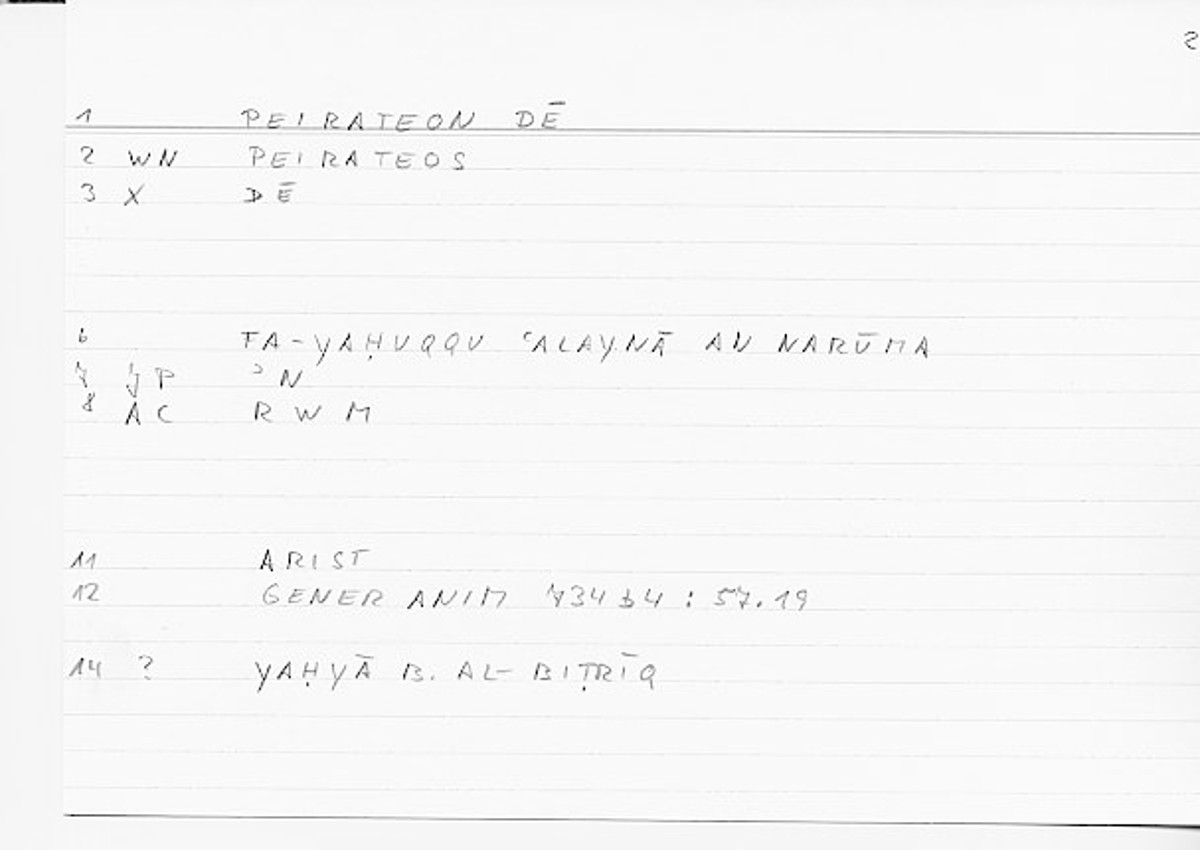 2
1 PEIRATEON DĒ
2 WN PEIRATEOS
3 X DĒ
6 FA-YAḤUQQU ʿALAYNĀ AN NARŪMA
7 JP ʾN
8 AC RWM
11 ARIST
12 GENER ANIM 734b4 : 57.19
14 ? YAḤYĀ B. AL-BIṬRĪQ